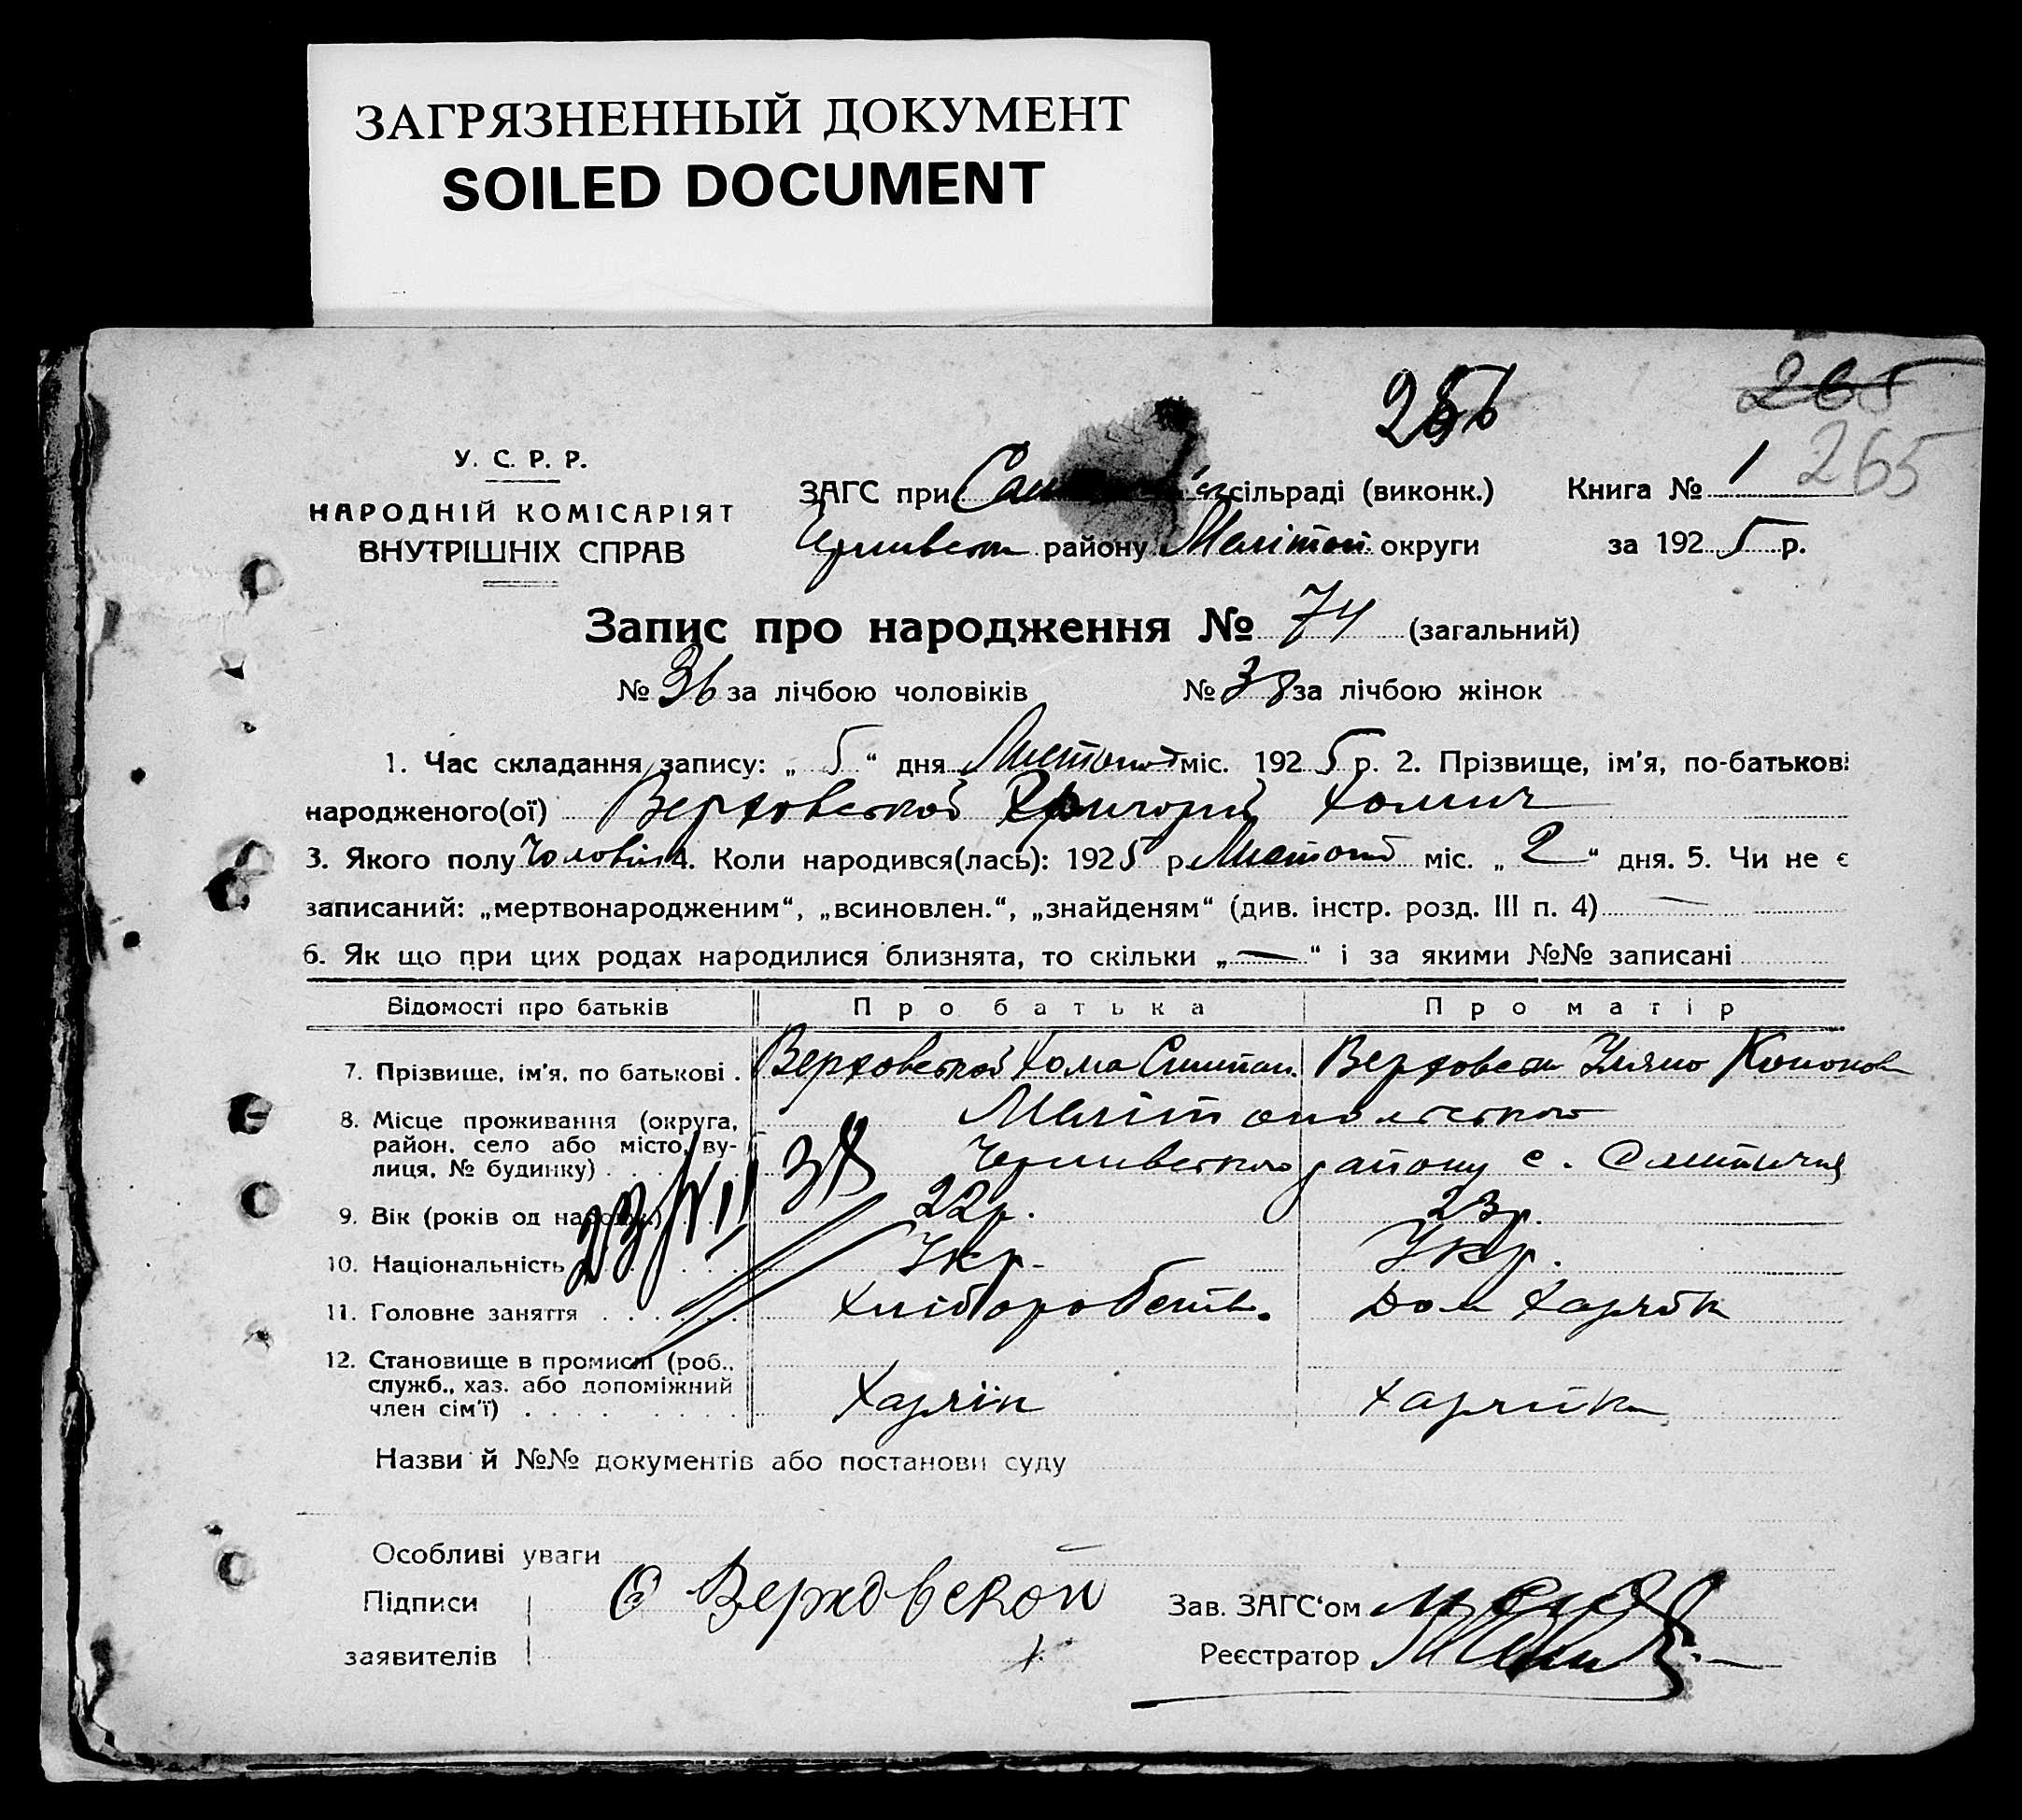 ЗАГРЯЗНЕННЫЙ ДОКУМЕНТ
SOILED DOCUMENT
265
265
У. С. Р. Р.
НАРОДНІЙ КОМІСАРІЯТ
ВНУТРІШНІХ СПРАВ
ЗАГС при сільраді (виконк.)
району округи
Книга № 1
за 1925 р.
Запис про народження № 74 (загальний)
№ 36 за лічбою чоловіків № 38 за лічбою жінок
1. Час складання запису: „ 5 “ дня Листопад міс. 1925 р. 2. Прізвище, ім'я, по-батькові
народженого(ої) Верховской Григорий Хомич
3. Якого полу Чоловіч 4. Коли народився(лась): 1925 р. Листопад міс. „ 2 “ дня. 5. Чи не є
записаний: „мертвонародженим“, „всиновлен.“, „знайденям“ (див. інстр. розд. III п. 4) —
6. Як що при цих родах народилися близнята, то скільки „—“ і за якими №№ записані
Відомості про батьків Про батька Про матір
7. Прізвище, ім'я, по батькові . Верховской Хома Верховск Уляна
8. Місце проживання (округа, район, село або місто, вулиця, № будинку) . Району с.
9. Вік (років од народж.) 22 р. 23 р.
10. Національність Укр. Укр.
11. Головне заняття Хліборобств. Дом Хазяйк
12. Становище в промислі (роб., служб., хаз. або допоміжний член сім'ї) Хазяїн Хазяйка
Назви й №№ документів або постанови суду
Особливі уваги
Підписи
заявителів
Верховской
Зав. ЗАГС'ом
Реєстратор